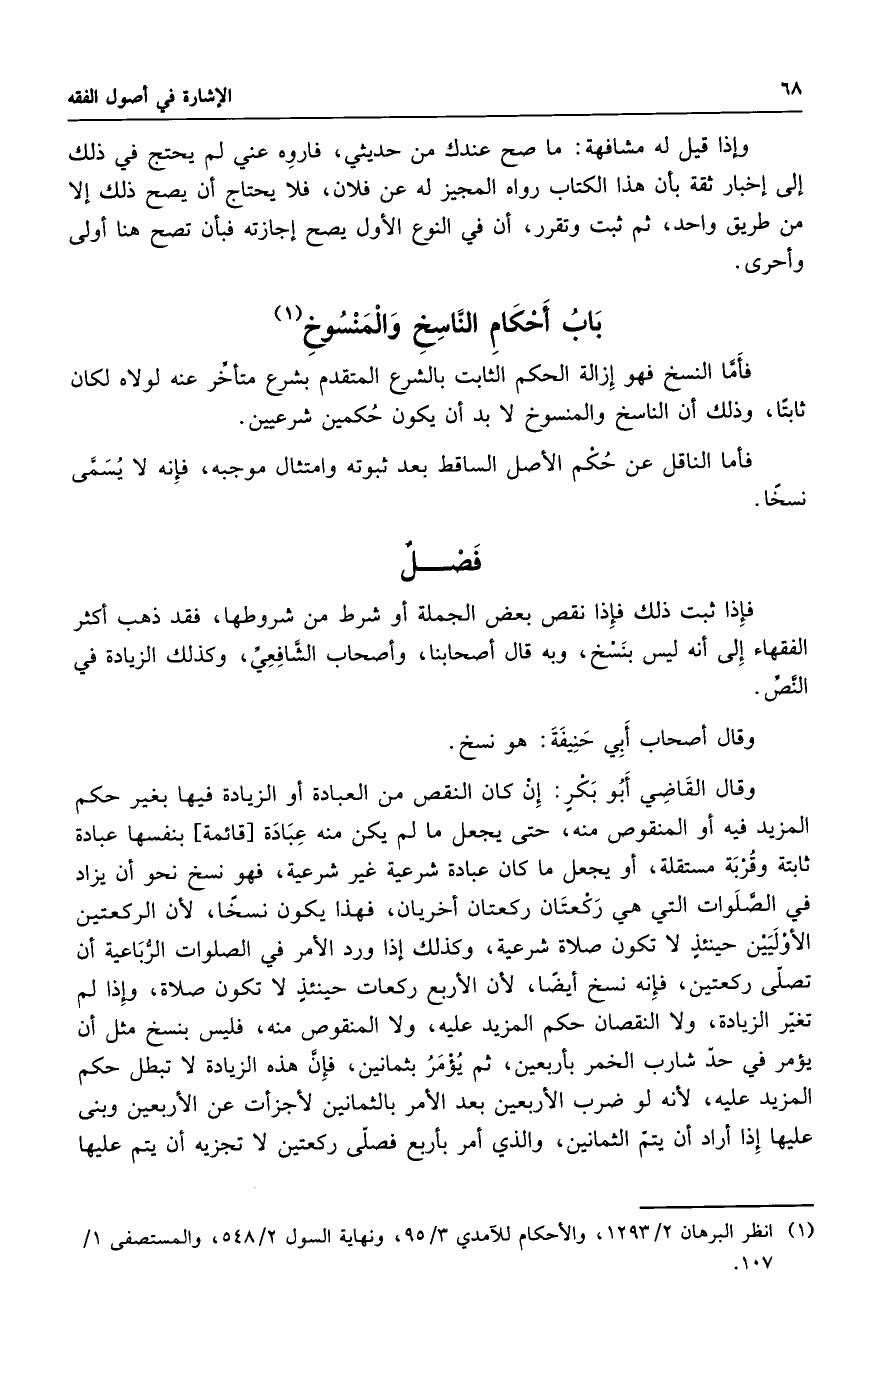 ٦٨
الإشارة في أصول الفقه
وإذا قيل له مشافهة: ما صح عندك من حديثي، فاروِه عني لم يحتج في ذلك
إلى إخبار ثقة بأن هذا الكتاب رواه المجيز له عن فلان، فلا يحتاج أن يصح ذلك إلا
من طريق واحد، ثم ثبت وتقرر، أن في النوع الأول يصح إجازته فبأن تصح هنا أولى
وأحرى.
بَابُ أَحْكَامِ النَّاسِخِ وَالْمَنْسُوخِ(١)
فأَمَّا النسخ فهو إزالة الحكم الثابت بالشرع المتقدم بشرع متأخّر عنه لولاه لكان
ثابتًا، وذلك أن الناسخ والمنسوخ لا بد أن يكون حُكمين شرعيين.
فأما الناقل عن حُكْم الأصل الساقط بعد ثبوته وامتثال موجبه، فإنه لا يُسَمَّى
نسخًا.
فَصْـــلٌ
فإذا ثبت ذلك فإذا نقص بعض الجملة أو شرط من شروطها، فقد ذهب أكثر
الفقهاء إلى أنه ليس بنَسْخ، وبه قال أصحابنا، وأصحاب الشَّافِعِيِّ، وكذلك الزيادة في
النَّصِّ.
وقال أصحاب أَبِي حَنِيفَةَ: هو نسخ.
وقال القَاضِي أَبُو بَكْرٍ: إنْ كان النقص من العبادة أو الزيادة فيها بغير حكم
المزيد فيه أو المنقوص منه، حتى يجعل ما لم يكن منه عِبَادَة [قائمة] بنفسها عبادة
ثابتة وقُرْبَة مستقلة، أو يجعل ما كان عبادة شرعية غير شرعية، فهو نسخ نحو أن يزاد
في الصَّلَوات التي هي رَكْعتَان ركعتان أخريان، فهذا يكون نسخًا، لأن الركعتين
الأوْلَيَيْن حينئذٍ لا تكون صلاة شرعية، وكذلك إذا ورد الأمر في الصلوات الرُّبَاعية أن
تصلّى ركعتين، فإنه نسخ أيضًا، لأن الأربع ركعات حينئذٍ لا تكون صلاة، وإذا لم
تغيّر الزيادة، ولا النقصان حكم المزيد عليه، ولا المنقوص منه، فليس بنسخ مثل أن
يؤمر في حدّ شارب الخمر بأربعين، ثم يُؤْمَرُ بثمانين، فإنَّ هذه الزيادة لا تبطل حكم
المزيد عليه، لأنه لو ضرب الأربعين بعد الأمر بالثمانين لأجزأت عن الأربعين وبنى
عليها إذا أراد أن يتمّ الثمانين، والذي أمر بأربع فصلّى ركعتين لا تجزيه أن يتم عليها
(١) انظر البرهان ١٢٩٣/٢، والأحكام للآمدي ٩٥/٣، ونهاية السول ٥٤٨/٢، والمستصفى ١/
١٠٧.